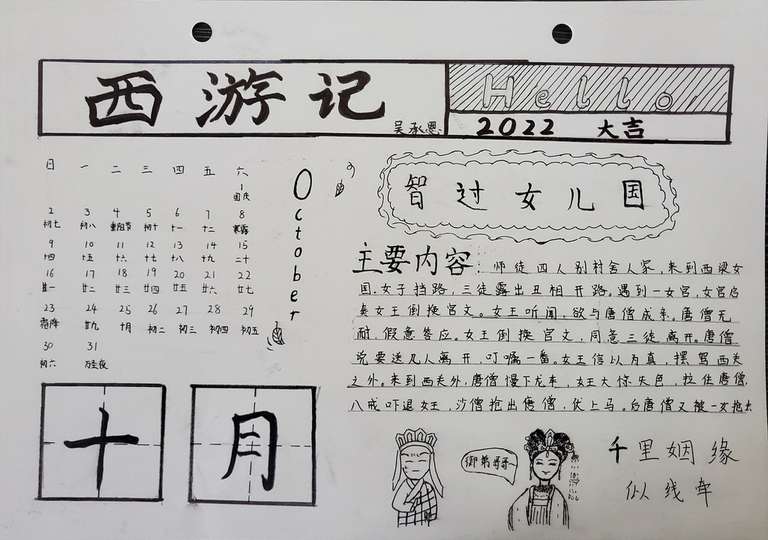 西游记
吴承恩
Hello
2022 大吉
日 一 二 三 四 五 六
1
国庆
2 3 4 5 6 7 8
初七 初八 重阳节 初十 十一 十二 寒露
9 10 11 12 13 14 15
十四 十五 十六 十七 十八 十九 二十
16 17 18 19 20 21 22
廿一 廿二 廿三 廿四 廿五 廿六 廿七
23 24 25 26 27 28 29
霜降 廿九 十月 初二 初三 初四 初五
30 31
初六 万圣夜
October
十月
智过女儿国
主要内容：师徒四人别村舍人家，来到西梁女
国。女子挡路，三徒露出丑相开路。遇到一女官，女官启
奏女王倒换官文。女王听闻，欲与唐僧成亲。唐僧无
耐，假意答应。女王倒换官文，同意三徒离开。唐僧
说要送几人离开，叮嘱一番。女王信以为真，摆驾西关
之外。来到西关外，唐僧慢下龙车，女王大惊失色，拉住唐僧，
八戒吓退女王，沙僧抢出唐僧，伏上马。后唐僧又被一女抢去
御弟哥哥~
千里姻缘
似线牵